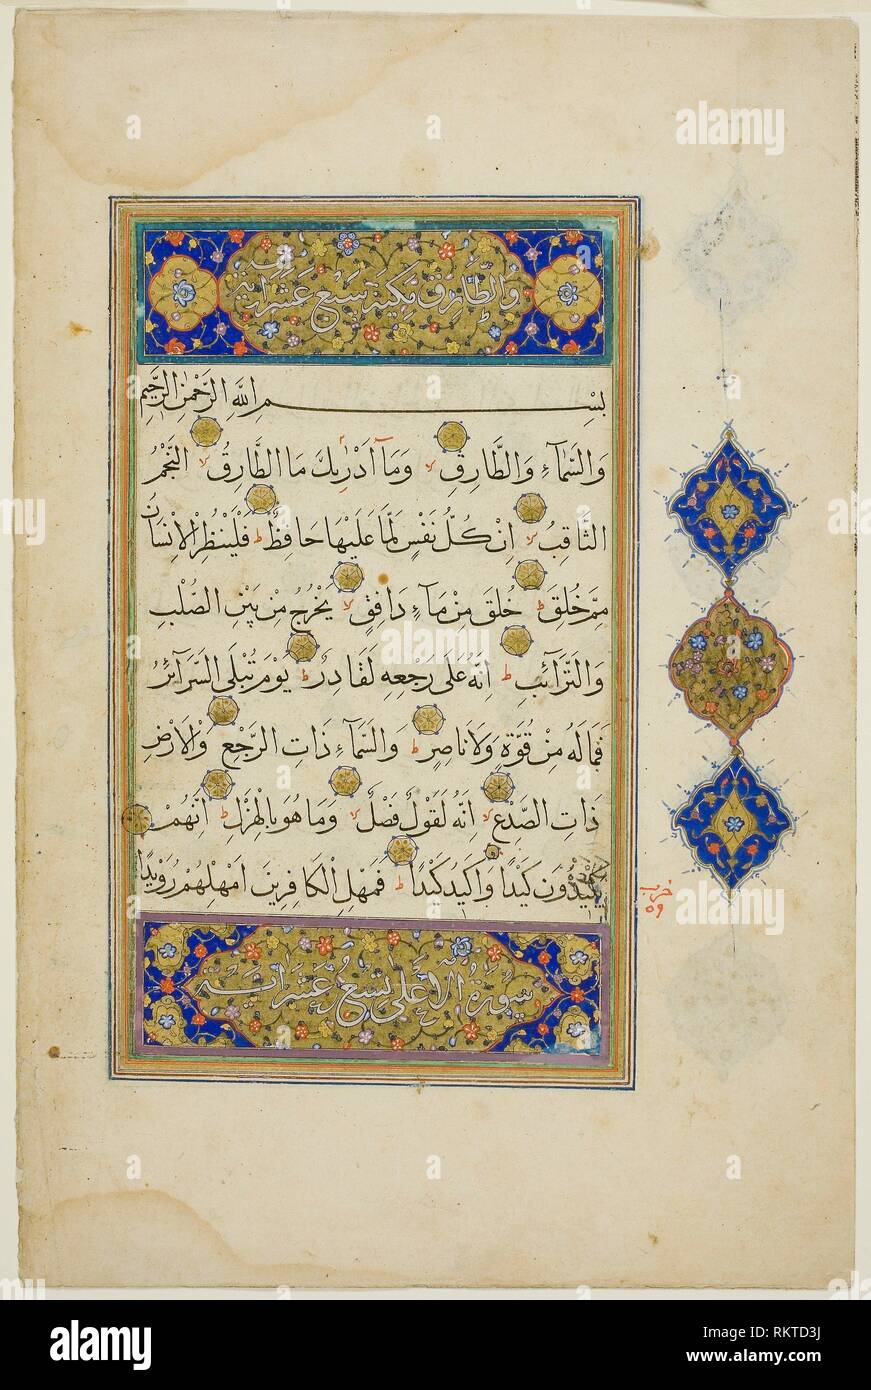 والطارق مكية سبع عشر آية
بِسْمِ اللَّهِ الرَّحْمٰنِ الرَّحِيمِ
وَالسَّمَآءِ وَالطَّارِقِ لا وَمَآ أَدْرٰيكَ مَا الطَّارِقُ لا النَّجْمُ
الثَّاقِبُ لا اِنْ كُلُّ نَفْسٍ لَمَّا عَلَيْهَا حَافِظٌ ط فَلْيَنْظُرِ الْاِنْسَانُ
مِمَّ خُلِقَ ط خُلِقَ مِنْ مَآءٍ دَافِقٍ لا يَخْرُجُ مِنْ بَيْنِ الصُّلْبِ
وَالتَّرَآئِبِ ط اِنَّهُ عَلَى رَجْعِهِ لَقَادِرٌ ط يَوْمَ تُبْلَى السَّرَآئِرُ
فَمَا لَهُ مِنْ قُوَّةٍ وَلَا نَاصِرٍ ط وَالسَّمَآءِ ذَاتِ الرَّجْعِ وَالْاَرْضِ
ذَاتِ الصَّدْعِ لا اِنَّهُ لَقَوْلٌ فَصْلٌ لا وَمَا هُوَ بِالْهَزْلِ ط اِنَّهُمْ
يَكِيدُونَ كَيْدًا وَاَكِيدُ كَيْدًا ط فَمَهِّلِ الْكَافِرِينَ اَمْهِلْهُمْ رُوَيْدًا
حزب
٥٩
سورة الأعلى تسع عشر آية
alamy
Image ID: RKTD3J
www.alamy.com